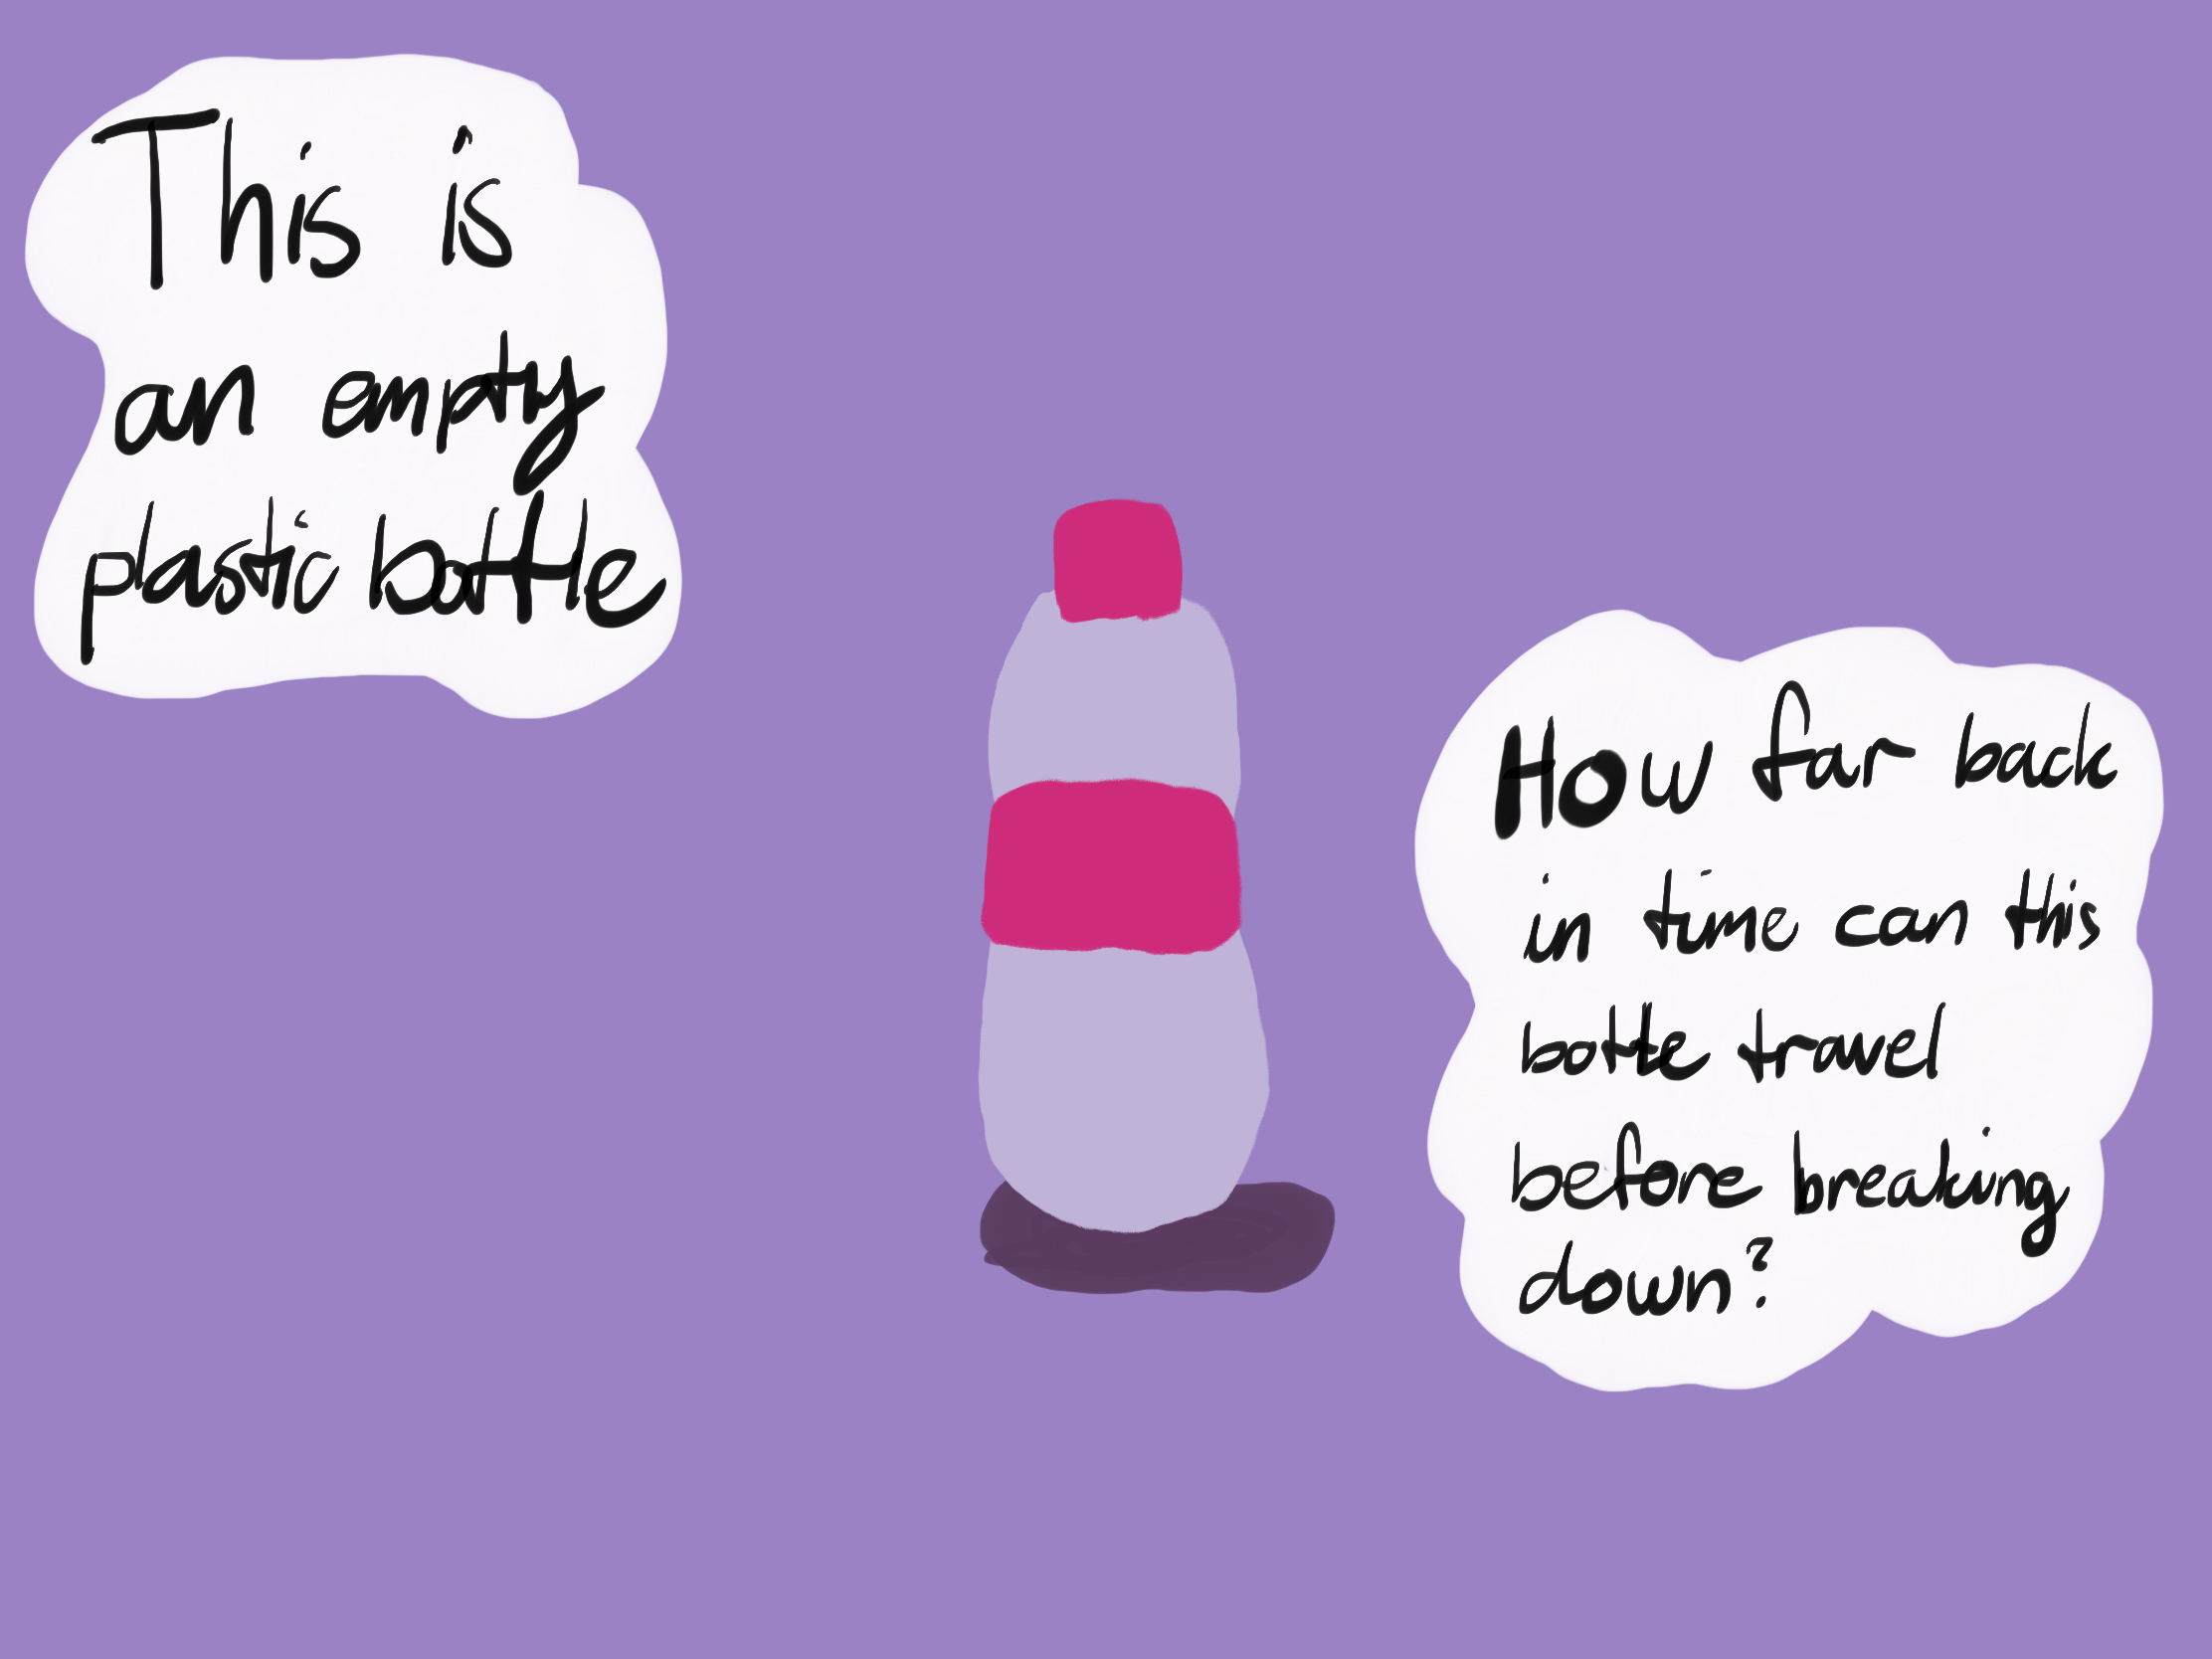 This is
an empty
plastic bottle
How far back
in time can this
bottle travel
before breaking
down?